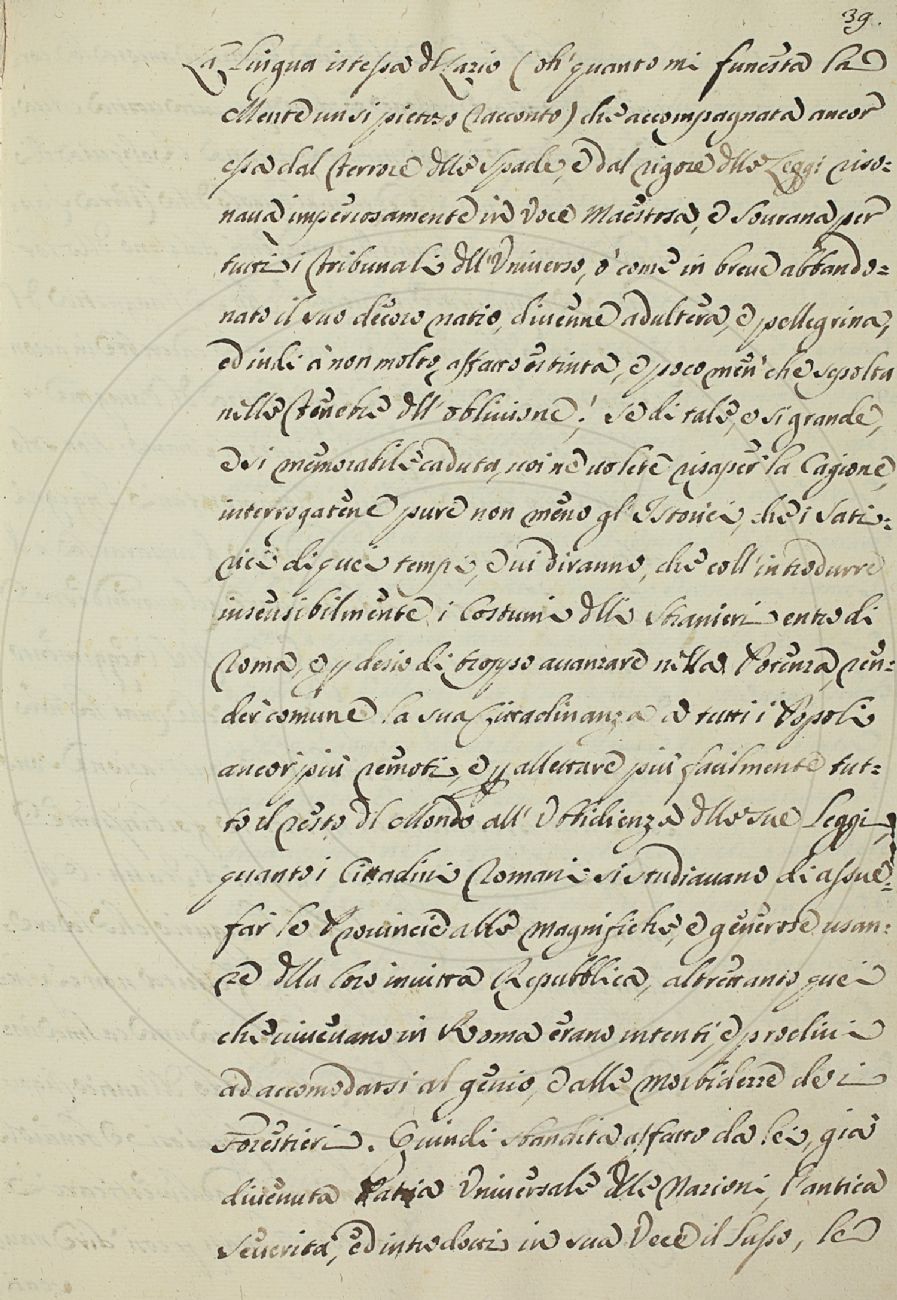 39.
La Lingua istessa dl Lazio (oh' quanto mi funesta la
Mente un si pietoso racconto) che accompagnata ancor'
essa dal terrore dlle Spade, e dal rigore dlle Leggi riso=
nava imperiosamente in Voce Maestosa, e Sourana per
tutti i Tribunali dll'Vniverso, o' come in breve abbando=
nato il suo decoro natio, divenne adultera, e pellegrina,
ed indi à non molto affatto estinta, e poco men' che sepolta
nelle Tenebre dll'oblivione! Se di tale, e si grande,
e si memorabile caduta, voi ne volete risaper' la Cagione,
interrogatene pure non meno gl'Istorici, che i Sati=
rici di quei tempi, e vi diranno, che coll'introdurre
insensibilmente i Costumi dlli Stranieri entro di
Roma, e p desio di troppo avanzare nella Potenza, ren=
der' comune la sua Cittadinanza a tutti i Popoli
ancor' più remoti, e p allettare più facilmente tut=
to il resto dl Mondo all'Vbbidienza dlle sue Leggi,
quanto i Cittadini Romani si studiavano di assue=
far le Provincie alle magnifiche, e generose usan=
ze dlla loro invitta Repubblica, altrettanto quei
che vivevano in Roma erano intenti, e proclivi
ad accomodarsi al genio, e alle morbidezze dei
Forestieri. Quindi sbandita affatto da lei, già
divenuta Patria Vniversale dlle Nazioni, l'antica
Severità, ed introdotti in sua Vece il Lusso, le